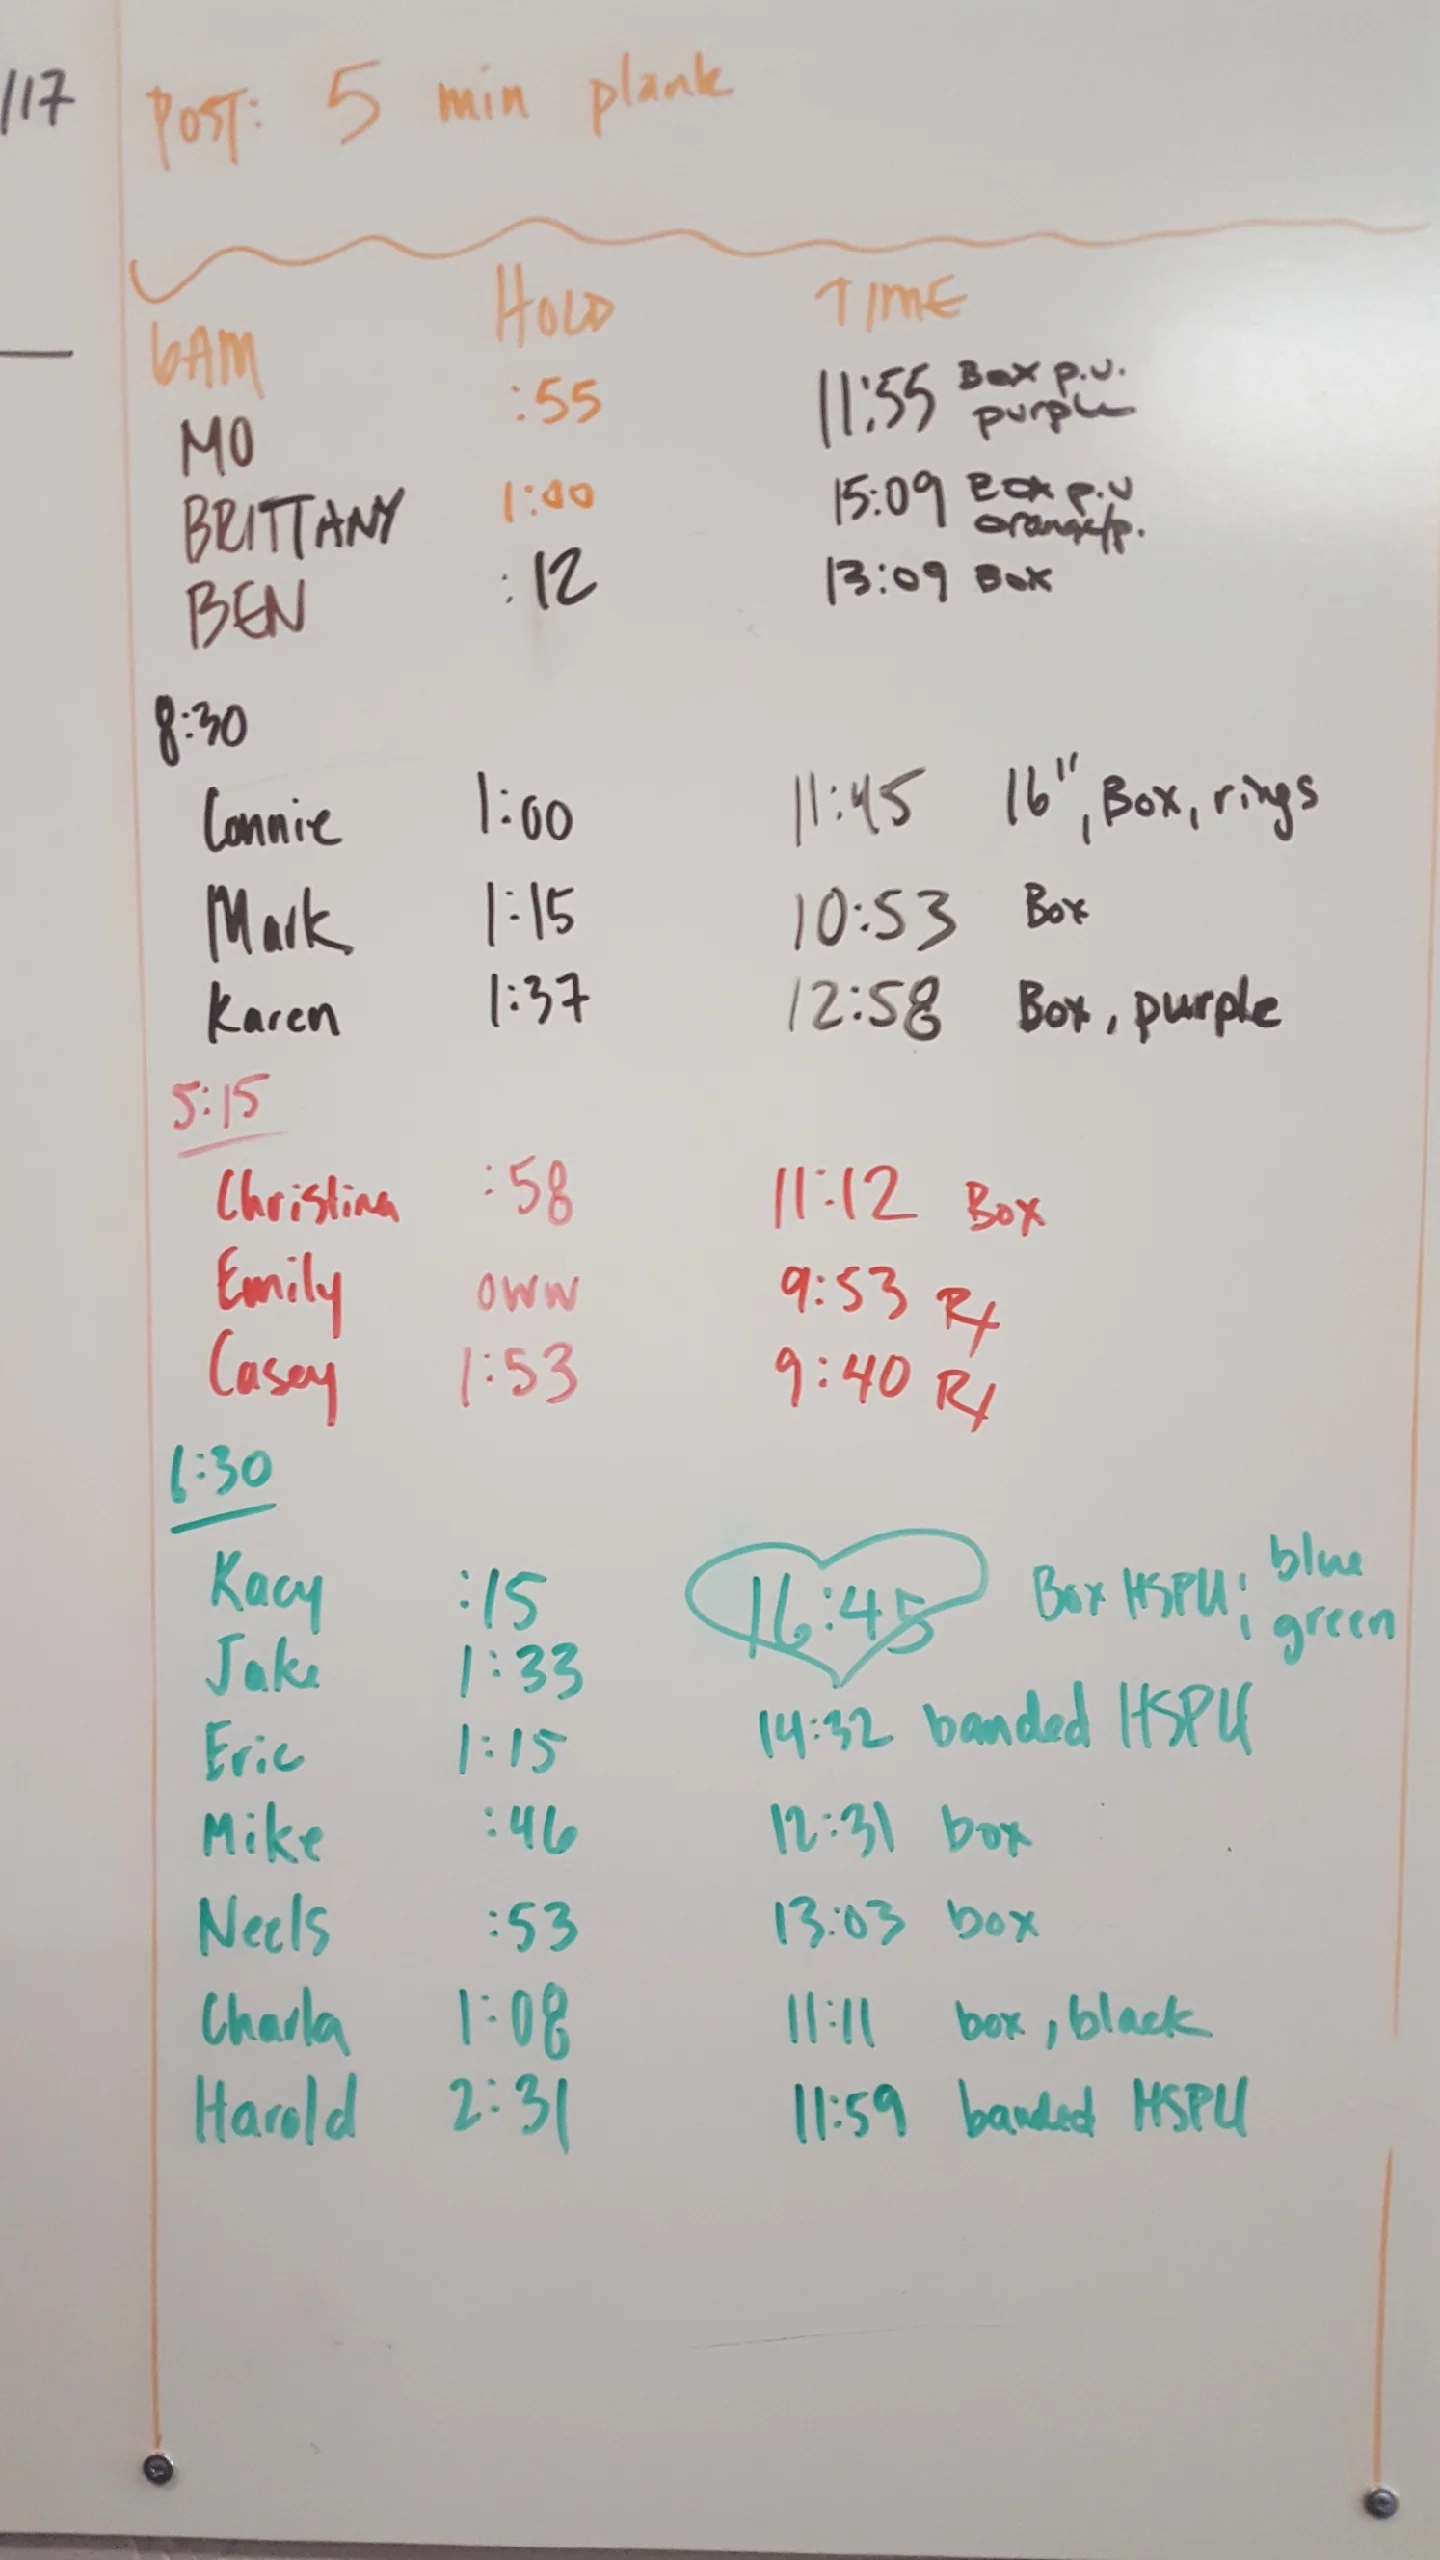 /17
POST: 5 min plank
6AM HOLD TIME
MO :55 11:55 Box p.u. purple
BRITTANY 1:00 15:09 Box p.u orange/p.
BEN :12 13:09 Box
8:30
Connie 1:00 11:45 16", Box, rings
Mark 1:15 10:53 Box
Karen 1:37 12:58 Box, purple
5:15
Christina :58 11:12 Box
Emily oww 9:53 Rx
Casey 1:53 9:40 Rx
6:30
Kacy :15 16:45 Box HSPU; blue green
Jake 1:33
Eric 1:15 14:32 banded HSPU
Mike :46 12:31 box
Neels :53 13:03 box
Charla 1:08 11:11 box, black
Harold 2:31 11:59 banded HSPU